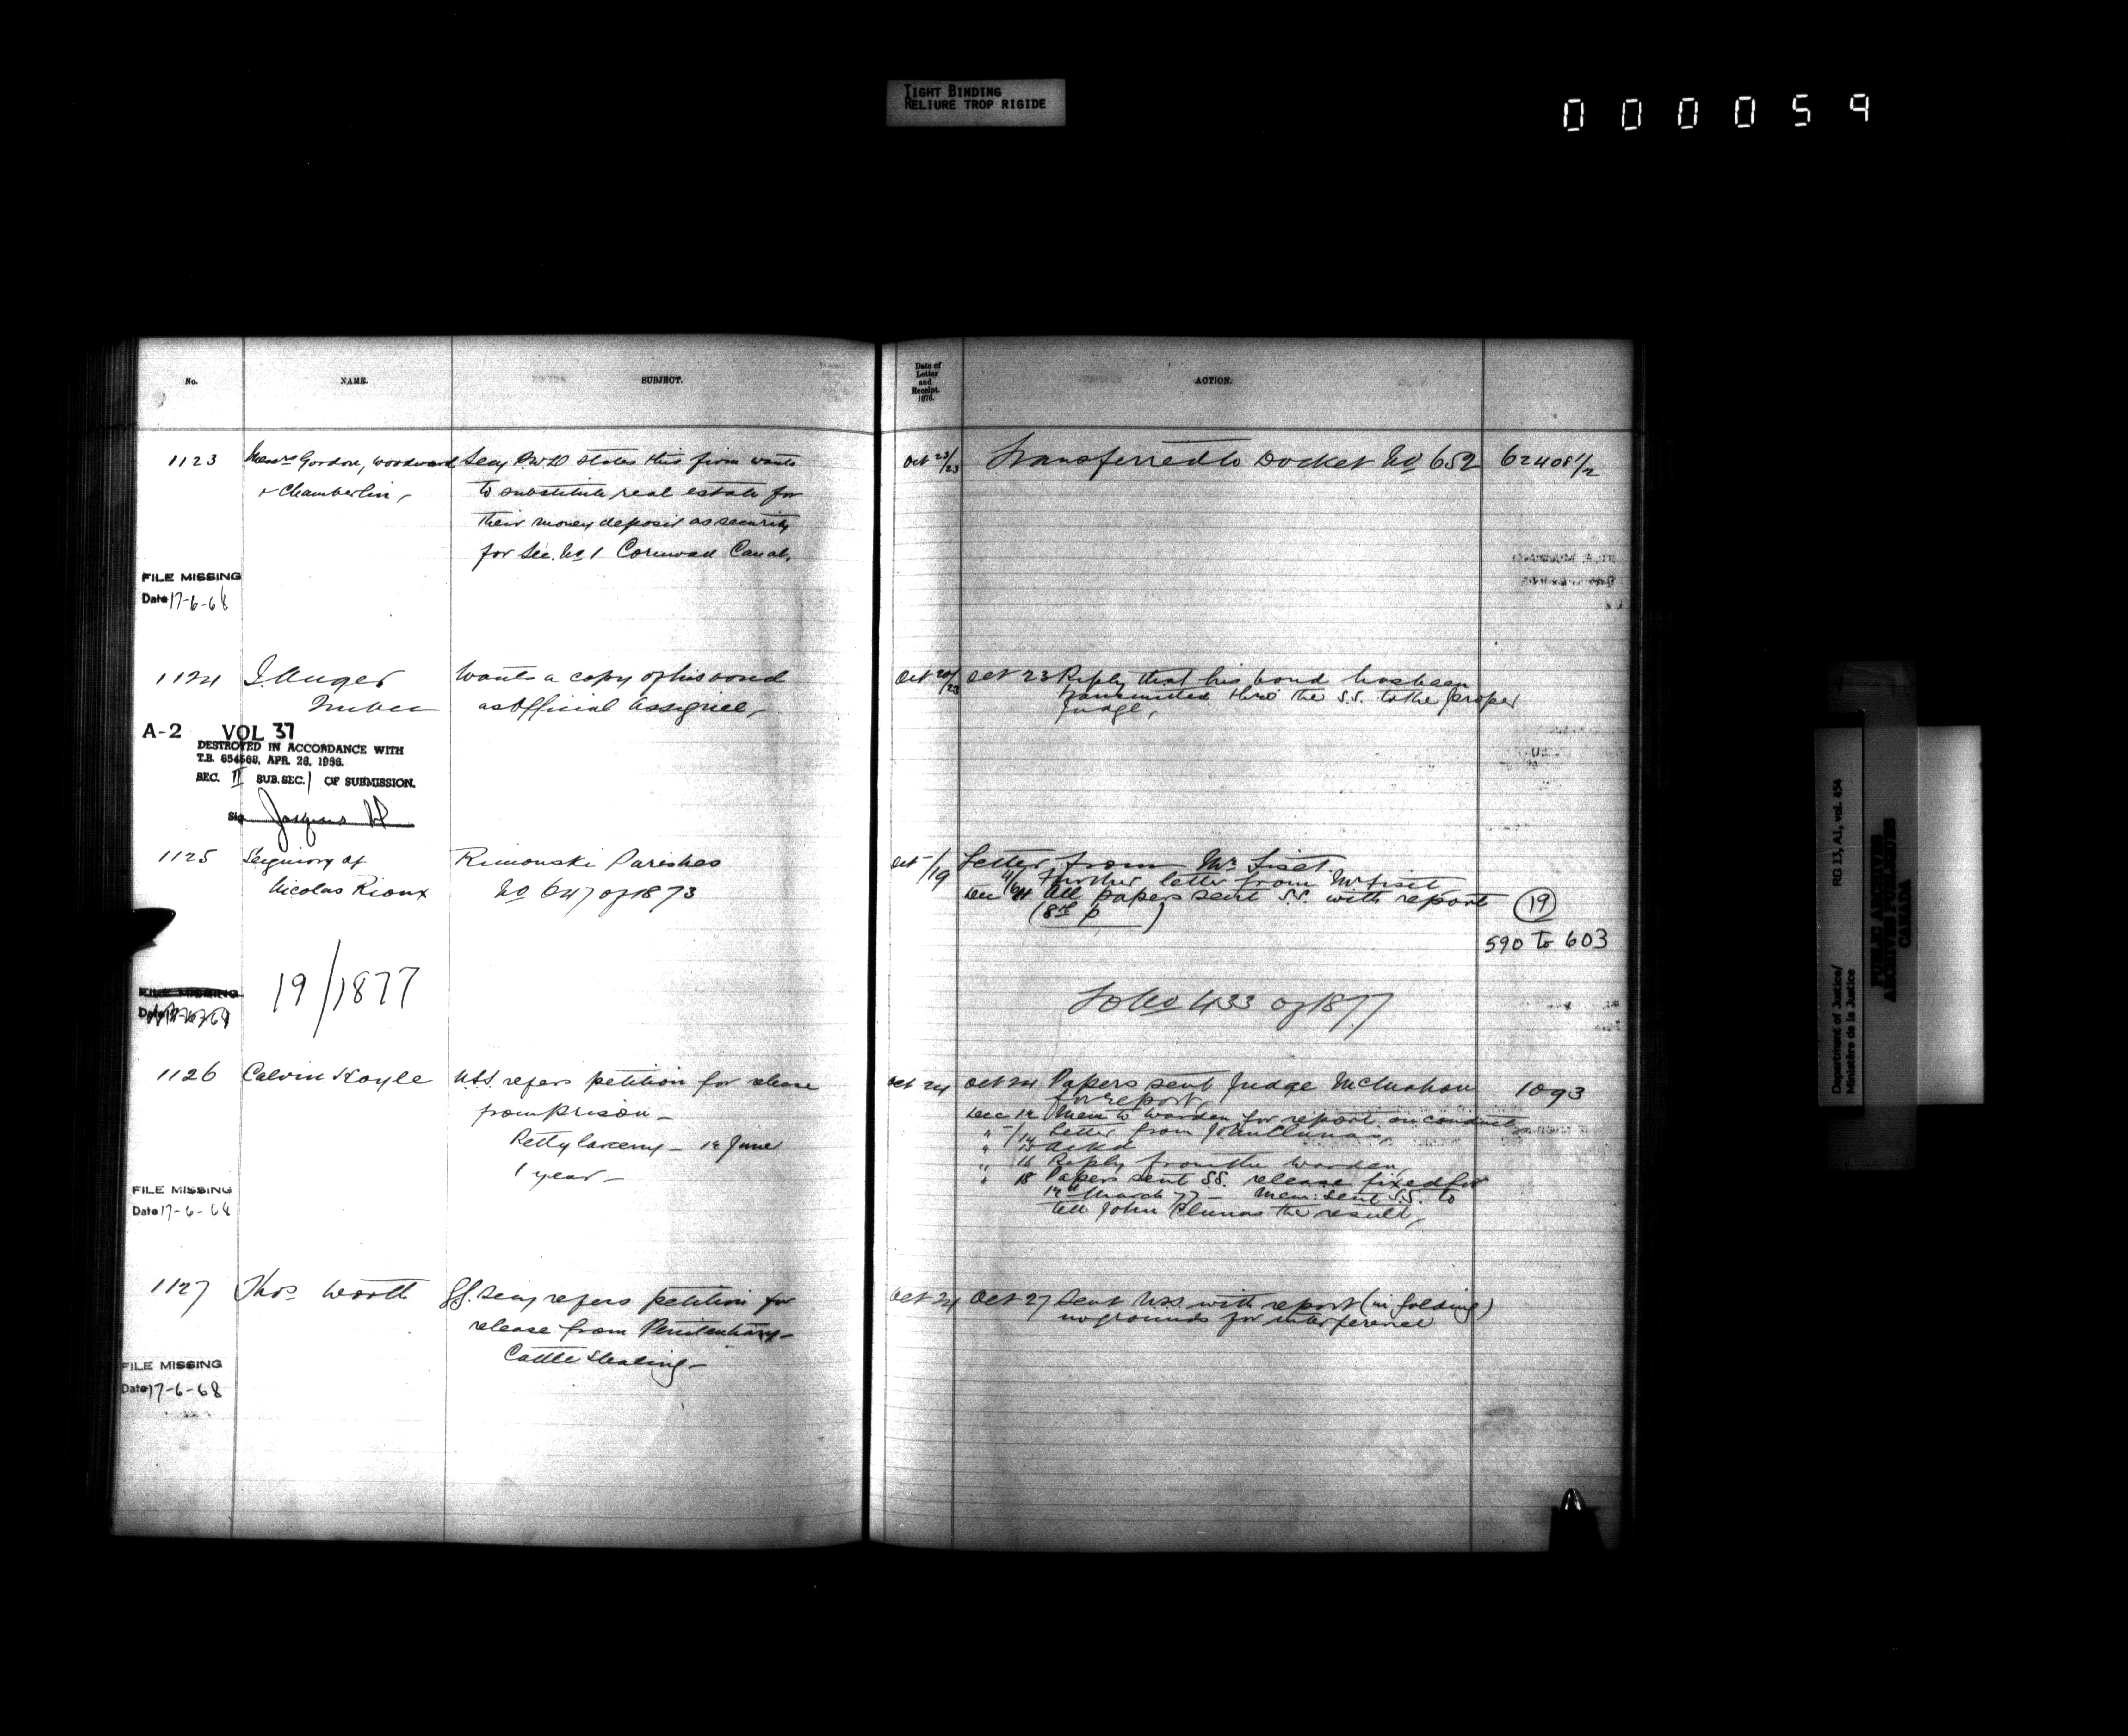 TIGHT BINDING
RELIURE TROP RIGIDE
000059
No. NAME. SUBJECT.
1123 Messrs Gordon, Woodward Secy P.W.D states this firm wants
& Chamberlin, to substitute real estate for
their money deposit as security
for Sec. No 1 Cornwall Canal,
FILE MISSING
Date 17-6-68
1124 J. Auger wants a copy of his bond
as Official Assignee,
A-2 VOL 37
DESTROYED IN ACCORDANCE WITH
T.B. 654568, APR. 28, 1966.
SEC. II SUB. SEC. 1 OF SUBMISSION.
Sig
1125 Seigniory of Rimouski Parishes
Nicolas Rioux No 647 of 1873
19/1877
FILE MISSING
Date
1126 Calvin Koyle U.S.S. refers petition for release
from prison –
Petty larceny – 12 June
1 year –
FILE MISSING
Date 17-6-68
1127 Thos Worth Secy refers petition for
release from Penitentiary –
Cattle Stealing –
FILE MISSING
Date 17-6-68
Date of
Letter
and
Receipt.
1876.
ACTION.
Oct 23/23 Transferred to Docket No 652 62408 1/2
Oct 20/23 Oct 23 Reply that his bond has been
transmitted thro' the S.S. to the proper
Judge,
Oct –/19 Letter from Mr Tiset
Further letter from Mr Tiset
Dec All papers sent S.S. with report 19
(8th p )
590 to 603
To No 433 of 1877
Oct 24 Oct 24 Papers sent Judge McMahon 1093
for report,
Dec 12 Mem to Warden for report on conduct
" –/14 Letter from John Clunas,
" 15 Ackd
" 16 Reply from the Warden,
" 18 Papers sent SS. release fixed for
12th March 77 – Mem: sent S.S. to
tell John Clunas the result,
Oct 24 Oct 27 Sent U.S.S. with report (in folding)
no grounds for interference
Department of Justice/
Ministère de la Justice
RG 13, A1, vol. 454
PUBLIC ARCHIVES
ARCHIVES PUBLIQUES
CANADA